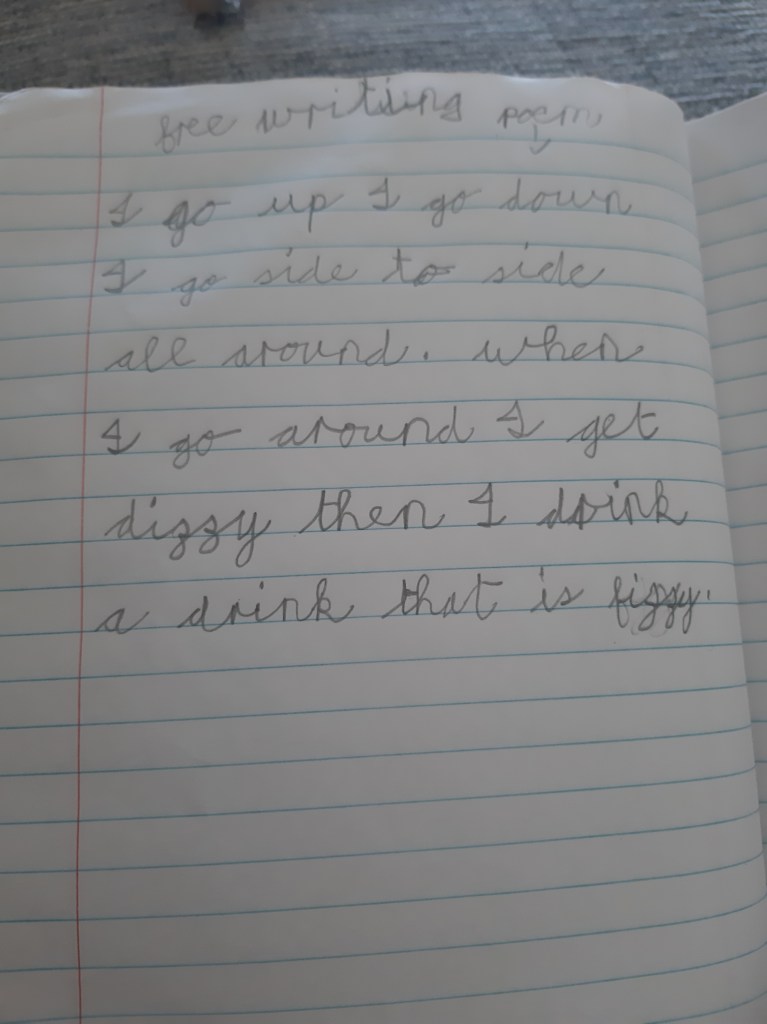 free writing poem
I go up I go down
I go side to side
all around. when
I go around I get
dizzy then I drink
a drink that is fizzy.